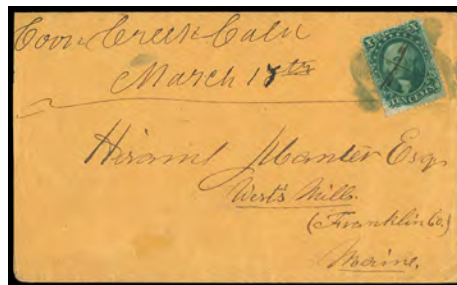 Coon Creek Cala
March 18th
Hiram Manter Esq
West's Mills.
(Franklin Co.)
Maine.
TEN CENTS